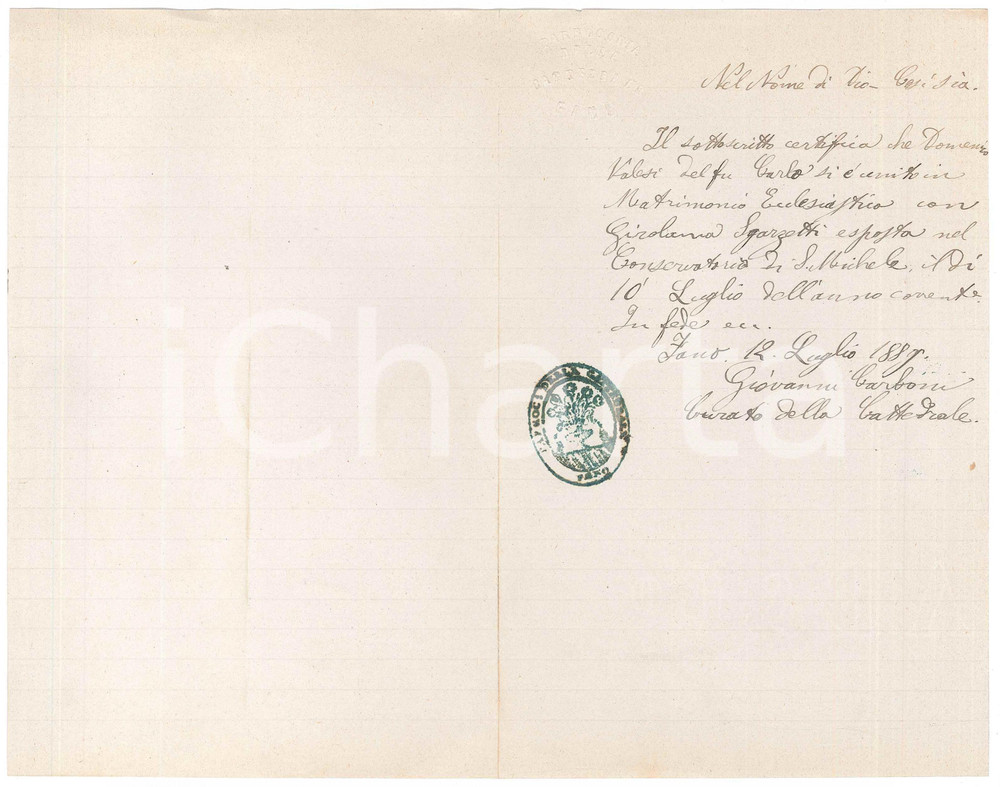 Nel Nome di Dio – Così sia.
Il sottoscritto certifica che Domenico
Valesi del fu Carlo si è unito in
Matrimonio Ecclesiastico con
Girolama Sgarzetti esposta nel
Conservatorio di S. Michele, il dì
10 Luglio dell'anno corrente.
In fede ecc.
Fano. 12. Luglio 1887.
Giovanni Carboni
Curato della Cattedrale.
PARROCI DELLA CATTEDRALE
FANO
iCharta